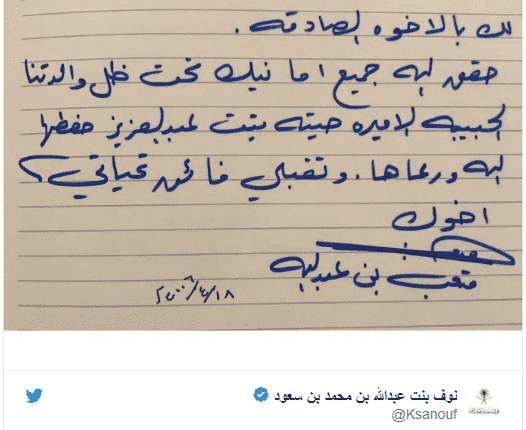 لك بالاخوه الصادقه.
حقق الله جميع امانيك تحت ظل والدتنا
الحبيبه الاميره حيته بنت عبدالعزيز حفظها
الله ورعاها. وتقبلي فائق تحياتي،
اخوك
متعب بن عبدالله
٢٠٠٦/٤/١٨
نوف بنت عبدالله بن محمد بن سعود
@Ksanouf